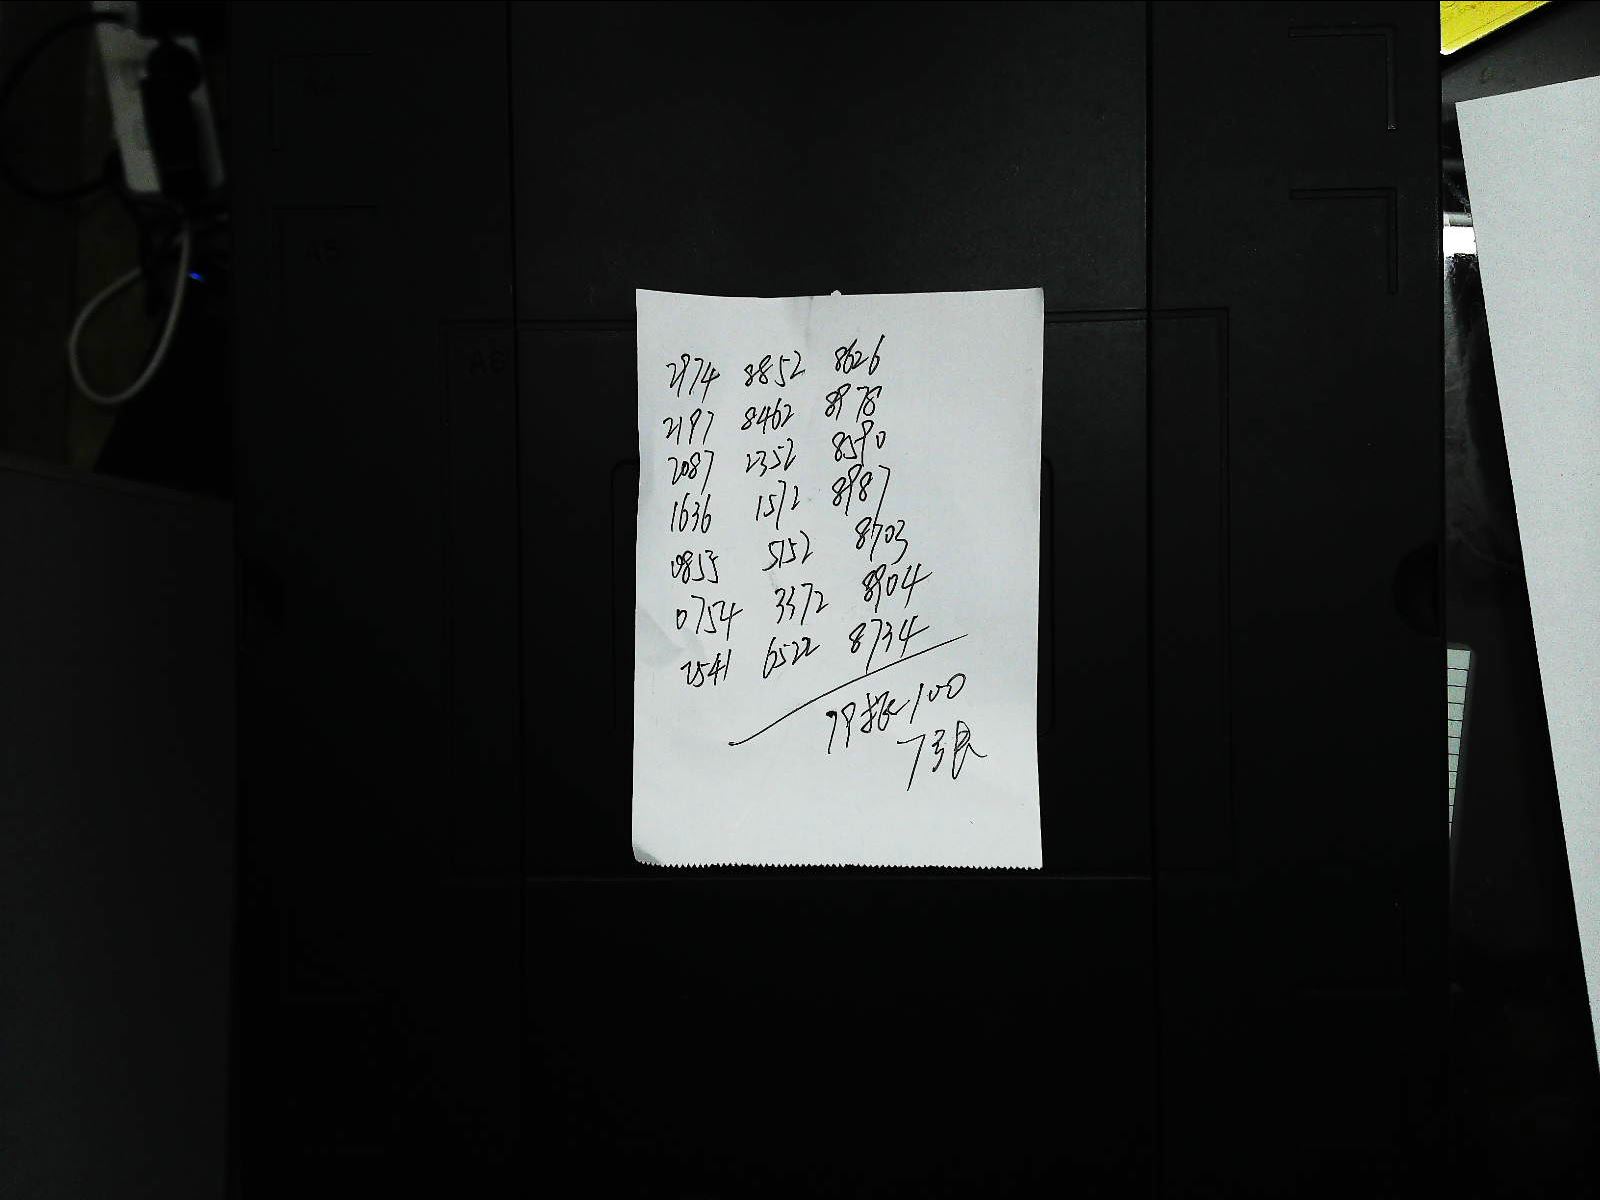 2974 8852 8626
2197 8462 8978
2087 2352 8590
1636 1572 8987
0853 5152 8703
0754 3372 8904
2541 6522 8734
排100
7张
A5
A6